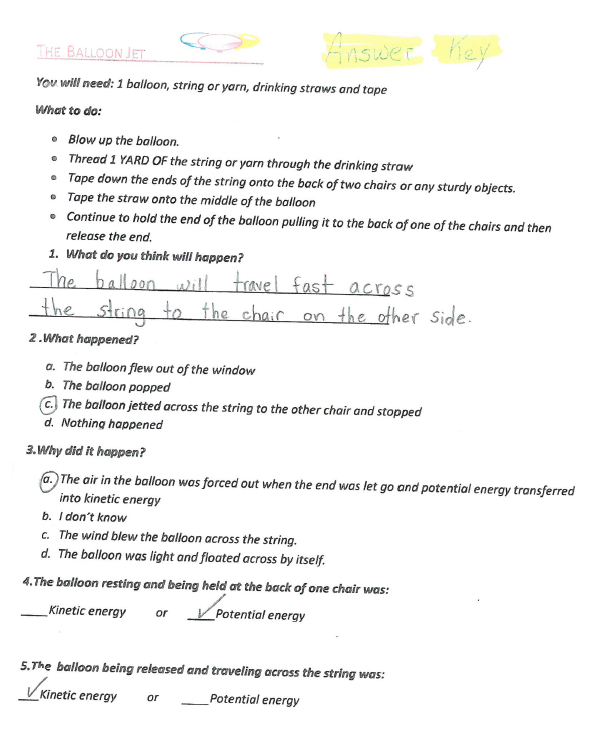 THE BALLOON JET
Answer Key
You will need: 1 balloon, string or yarn, drinking straws and tape
What to do:
• Blow up the balloon.
• Thread 1 YARD OF the string or yarn through the drinking straw
• Tape down the ends of the string onto the back of two chairs or any sturdy objects.
• Tape the straw onto the middle of the balloon
• Continue to hold the end of the balloon pulling it to the back of one of the chairs and then
release the end.
1. What do you think will happen?
The balloon will travel fast across
the string to the chair on the other side.
2.What happened?
a. The balloon flew out of the window
b. The balloon popped
c. The balloon jetted across the string to the other chair and stopped
d. Nothing happened
3.Why did it happen?
a. The air in the balloon was forced out when the end was let go and potential energy transferred
into kinetic energy
b. I don't know
c. The wind blew the balloon across the string.
d. The balloon was light and floated across by itself.
4.The balloon resting and being held at the back of one chair was:
___Kinetic energy or ✓Potential energy
5.The balloon being released and traveling across the string was:
✓Kinetic energy or ___Potential energy